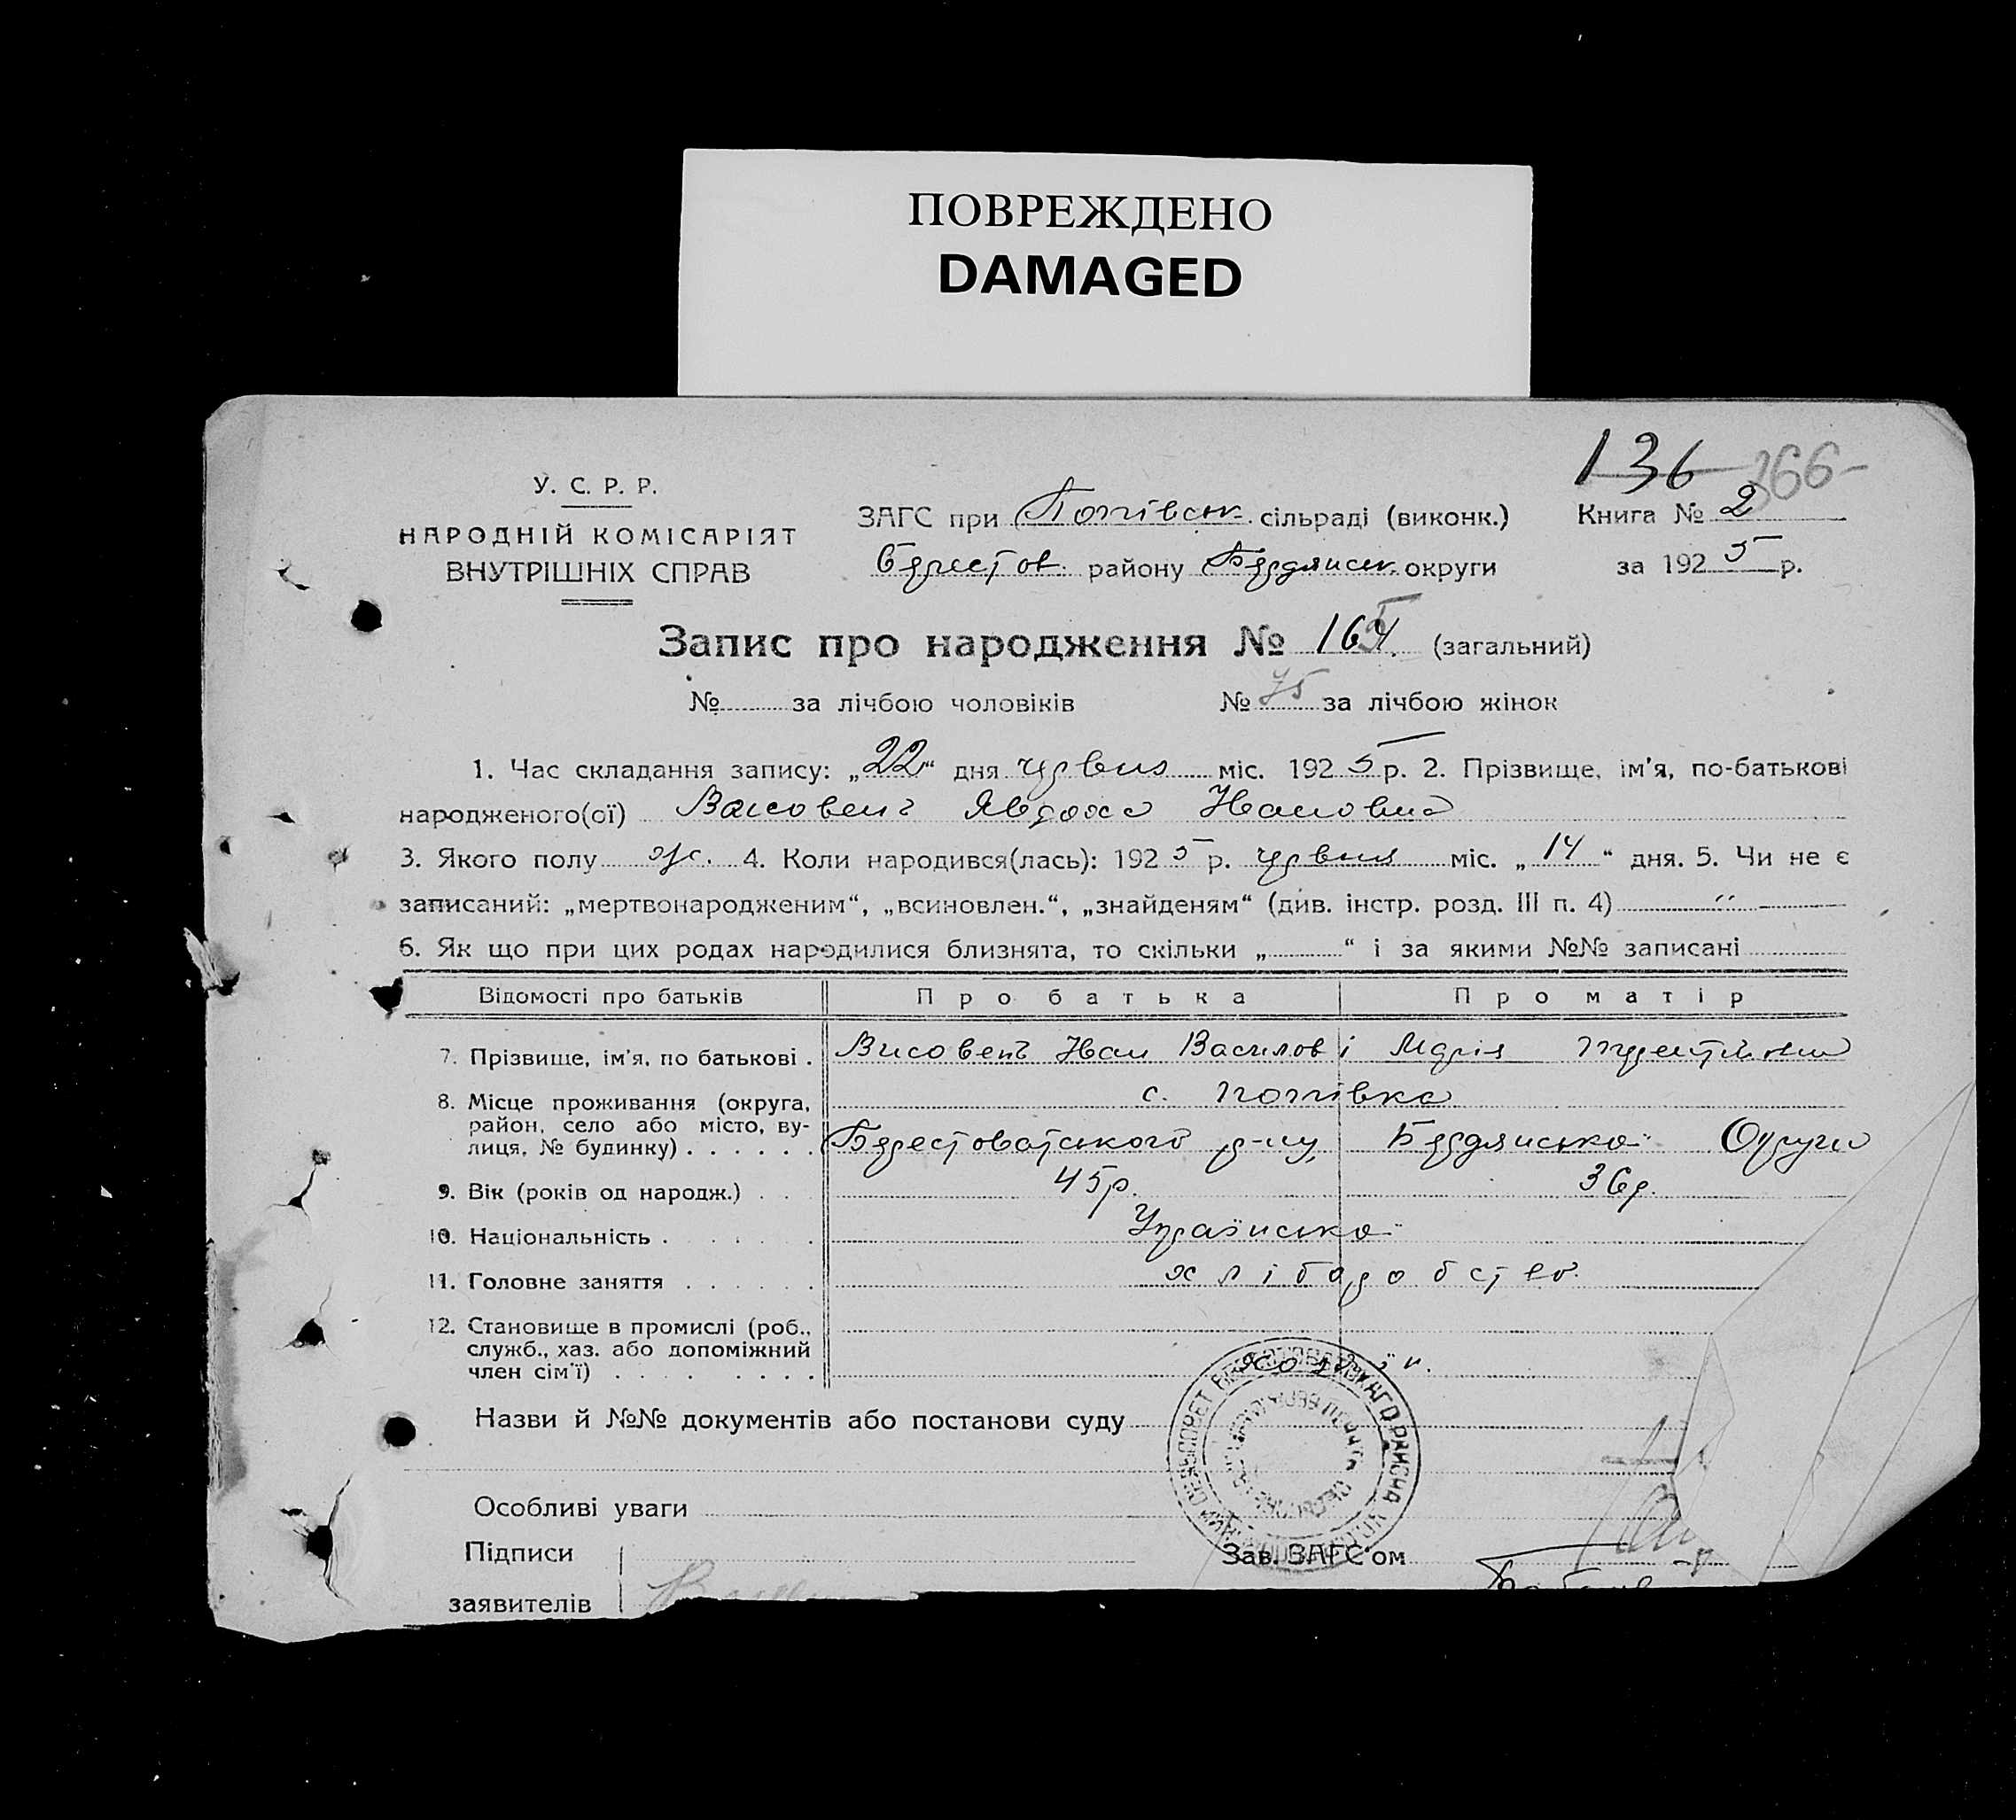 ПОВРЕЖДЕНО
DAMAGED
136 366-
У. С. Р. Р.
НАРОДНІЙ КОМІСАРІЯТ
ВНУТРІШНІХ СПРАВ
ЗАГС при Попівськ. сільраді (виконк.)
Берестов. району Бердянськ. округи
Книга № 2
за 1925 р.
Запис про народження № 165 (загальний)
№ за лічбою чоловіків № 75 за лічбою жінок
1. Час складання запису: „22“ дня червня міс. 1925 р. 2. Прізвище, ім'я, по-батькові
народженого(ої) Висовень Явдоха Ивановна
3. Якого полу ж. 4. Коли народився(лась): 1925 р. червня міс. „14“ дня. 5. Чи не є
записаний: „мертвонародженим“, „всиновлен.“, „знайденям“ (див. інстр. розд. III п. 4) "
6. Як що при цих родах народилися близнята, то скільки „ “ і за якими №№ записані
Відомості про батьків Про батька Про матір
7. Прізвище, ім'я, по батькові . Висовень Иван Василов і Марія
8. Місце проживання (округа, с. Попівка
район, село або місто, ву-
лиця, № будинку) . . . . . . Берестоватського р-ну, Бердянської Округи
9. Вік (років од народж.) . . 45р. 36р.
10. Національність . . . . . . Українська
11. Головне заняття . . . . . . хліборобство
12. Становище в промислі (роб.,
служб., хаз. або допоміжний
член сім'ї) . . . . . . . .
Назви й №№ документів або постанови суду
Особливі уваги
Підписи
заявителів
Зав. ЗАГС'ом